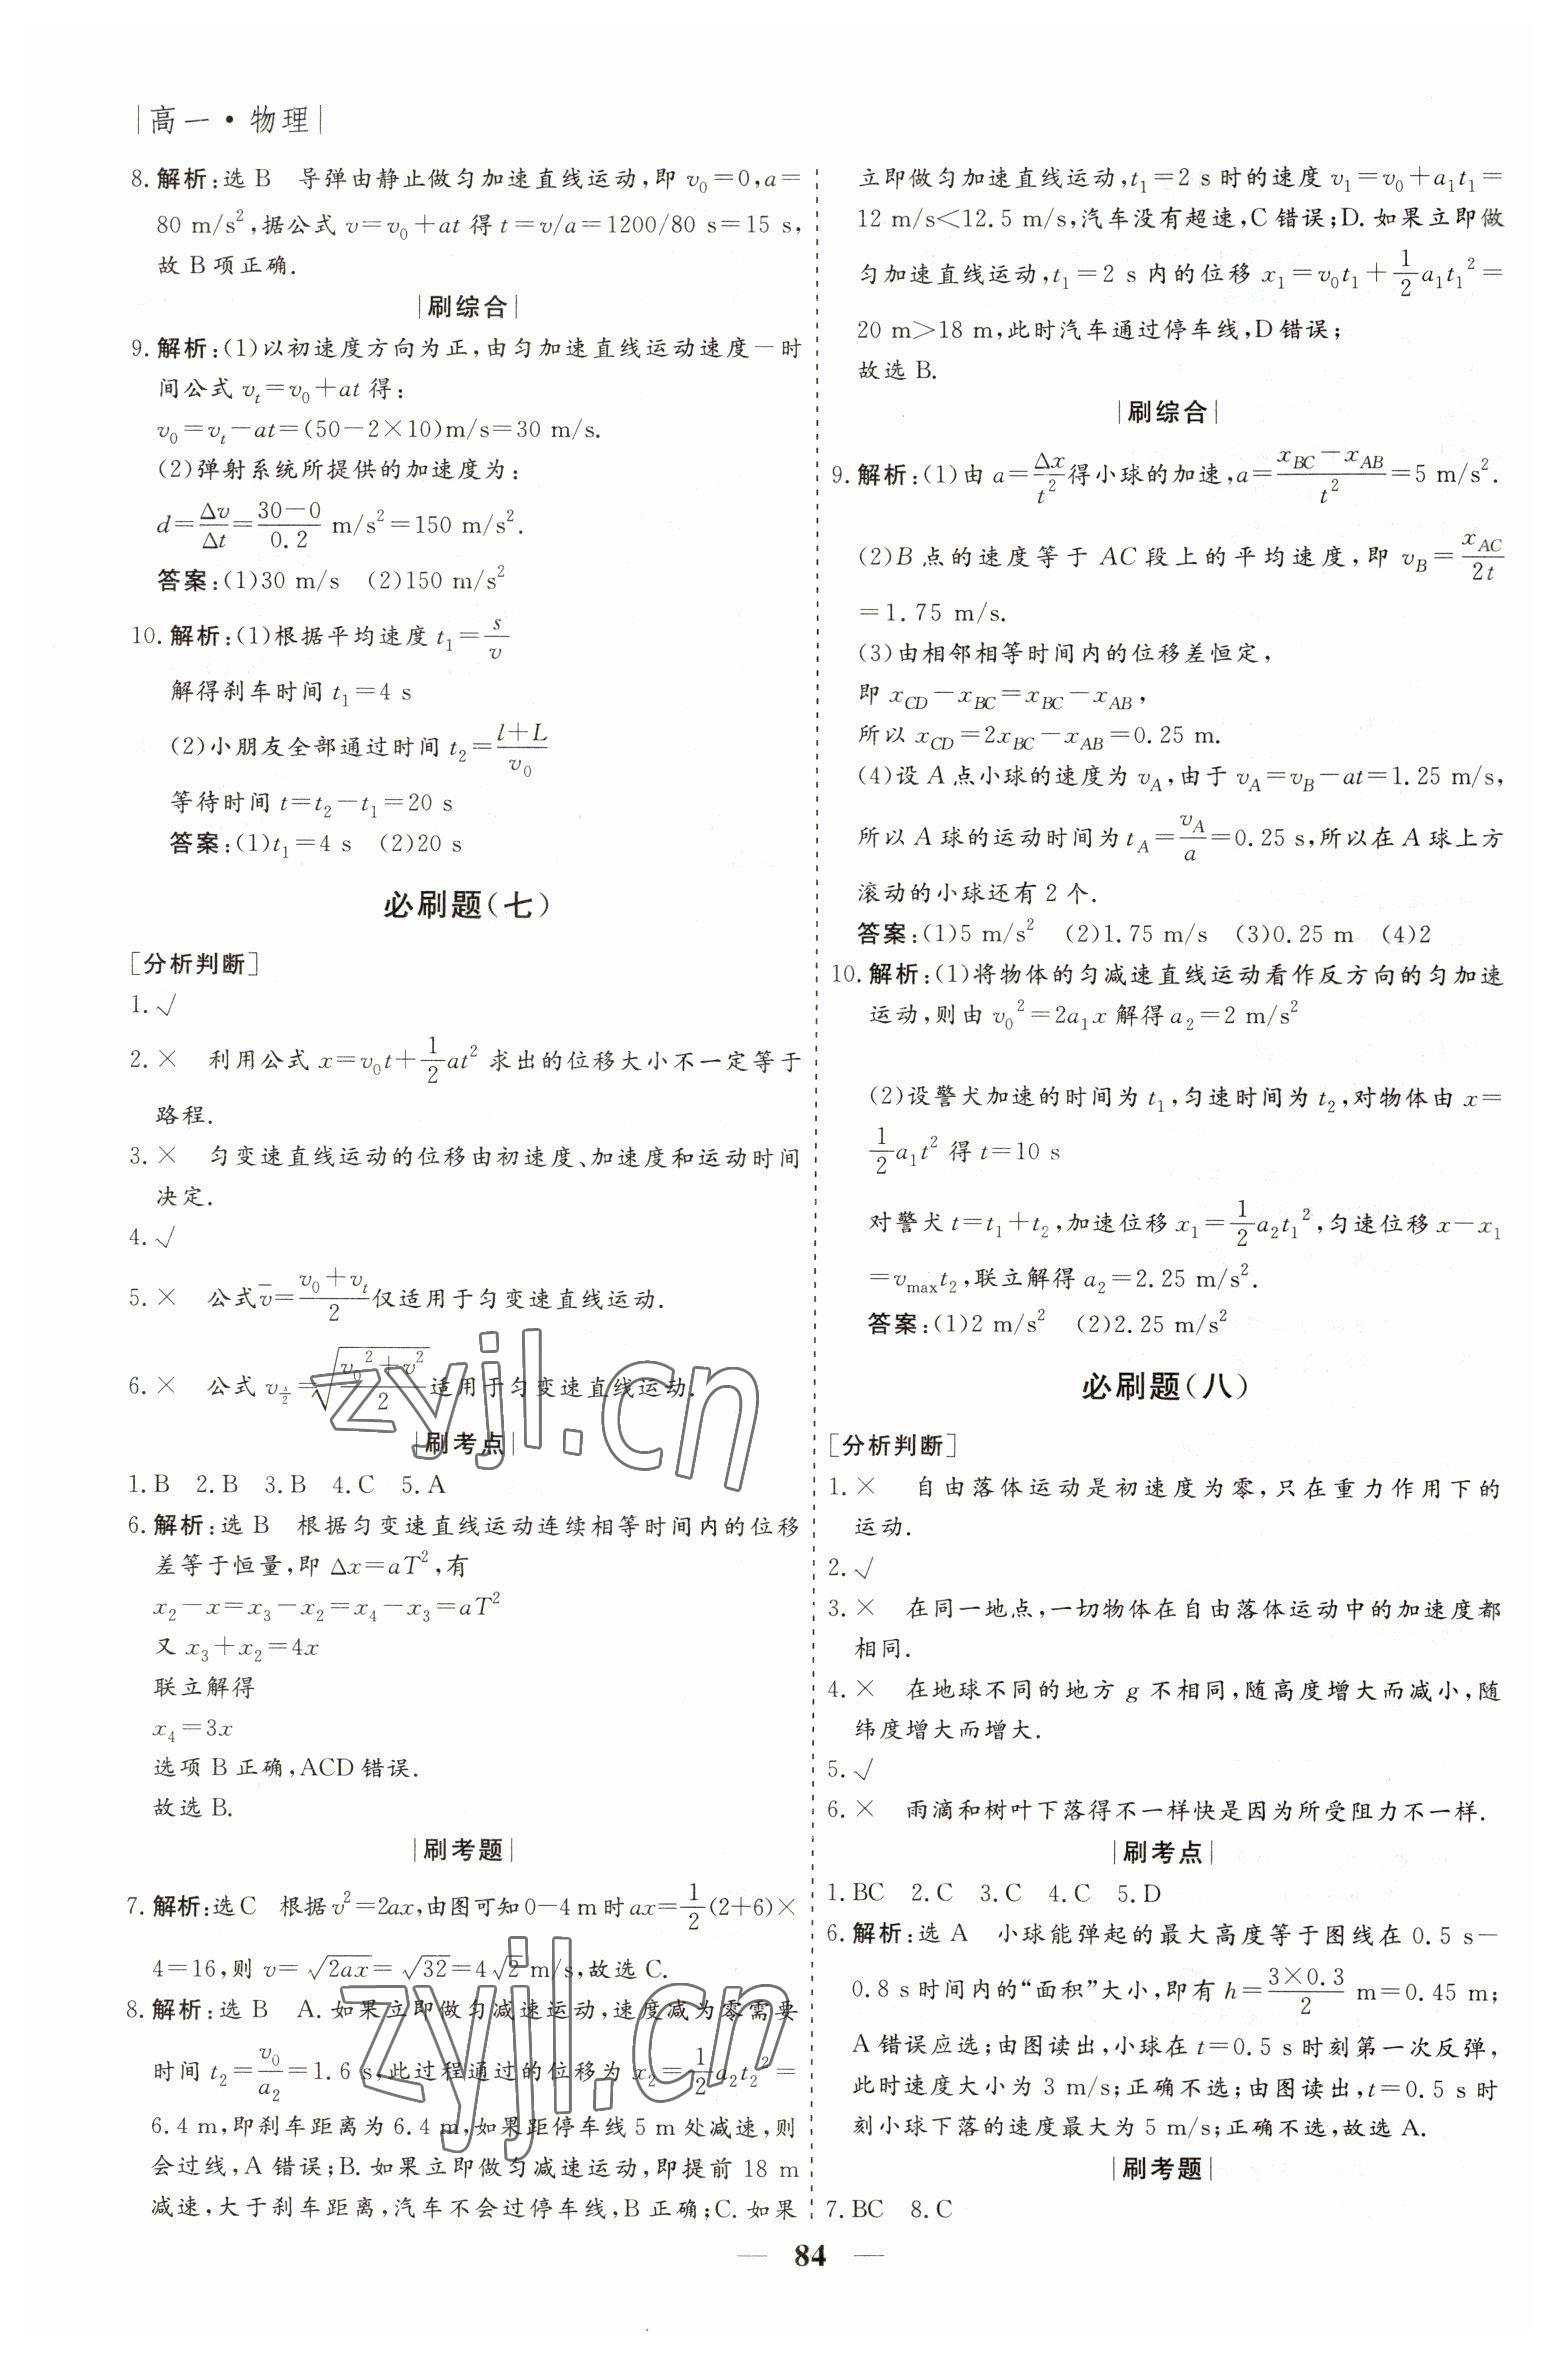 |高一·物理|
8.解析:选 B 导弹由静止做匀加速直线运动,即 v₀=0,a=
80 m/s²,据公式 v=v₀+at 得 t=v/a=1200/80 s=15 s,
故 B 项正确.
|刷综合|
9.解析:(1)以初速度方向为正,由匀加速直线运动速度—时
间公式 vₜ=v₀+at 得:
v₀=vₜ-at=(50-2×10)m/s=30 m/s.
(2)弹射系统所提供的加速度为:
d=Δv/Δt=(30-0)/0.2 m/s²=150 m/s².
答案:(1)30 m/s (2)150 m/s²
10.解析:(1)根据平均速度 t₁=s/v
解得刹车时间 t₁=4 s
(2)小朋友全部通过时间 t₂=(l+L)/v₀
等待时间 t=t₂-t₁=20 s
答案:(1)t₁=4 s (2)20 s
必刷题(七)
[分析判断]
1.√
2.× 利用公式 x=v₀t+1/2 at² 求出的位移大小不一定等于
路程.
3.× 匀变速直线运动的位移由初速度、加速度和运动时间
决定.
4.√
5.× 公式 v̄=(v₀+vₜ)/2 仅适用于匀变速直线运动.
6.× 公式 v_(x/2)=√((v₀²+v²)/2) 适用于匀变速直线运动.
|刷考点|
1.B 2.B 3.B 4.C 5.A
6.解析:选 B 根据匀变速直线运动连续相等时间内的位移
差等于恒量,即 Δx=aT²,有
x₂-x=x₃-x₂=x₄-x₃=aT²
又 x₃+x₂=4x
联立解得
x₄=3x
选项 B 正确,ACD 错误.
故选 B.
|刷考题|
7.解析:选 C 根据 v²=2ax,由图可知 0—4 m 时 ax=1/2(2+6)×
4=16,则 v=√(2ax)=√32=4√2 m/s,故选 C.
8.解析:选 B A.如果立即做匀减速运动,速度减为零需要
时间 t₂=v₀/a₂=1.6 s,此过程通过的位移为 x₂=1/2 a₂t₂²=
6.4 m,即刹车距离为 6.4 m,如果距停车线 5 m 处减速,则
会过线,A 错误;B.如果立即做匀减速运动,即提前 18 m
减速,大于刹车距离,汽车不会过停车线,B 正确;C.如果
立即做匀加速直线运动,t₁=2 s 时的速度 v₁=v₀+a₁t₁=
12 m/s<12.5 m/s,汽车没有超速,C 错误;D.如果立即做
匀加速直线运动,t₁=2 s 内的位移 x₁=v₀t₁+1/2 a₁t₁²=
20 m>18 m,此时汽车通过停车线,D 错误;
故选 B.
|刷综合|
9.解析:(1)由 a=Δx/t² 得小球的加速,a=(x_BC-x_AB)/t²=5 m/s².
(2)B 点的速度等于 AC 段上的平均速度,即 v_B=x_AC/2t
=1.75 m/s.
(3)由相邻相等时间内的位移差恒定,
即 x_CD-x_BC=x_BC-x_AB,
所以 x_CD=2x_BC-x_AB=0.25 m.
(4)设 A 点小球的速度为 v_A,由于 v_A=v_B-at=1.25 m/s,
所以 A 球的运动时间为 t_A=v_A/a=0.25 s,所以在 A 球上方
滚动的小球还有 2 个.
答案:(1)5 m/s² (2)1.75 m/s (3)0.25 m (4)2
10.解析:(1)将物体的匀减速直线运动看作反方向的匀加速
运动,则由 v₀²=2a₁x 解得 a₂=2 m/s²
(2)设警犬加速的时间为 t₁,匀速时间为 t₂,对物体由 x=
1/2 a₁t² 得 t=10 s
对警犬 t=t₁+t₂,加速位移 x₁=1/2 a₂t₁²,匀速位移 x-x₁
=v_max t₂,联立解得 a₂=2.25 m/s².
答案:(1)2 m/s² (2)2.25 m/s²
必刷题(八)
[分析判断]
1.× 自由落体运动是初速度为零,只在重力作用下的
运动.
2.√
3.× 在同一地点,一切物体在自由落体运动中的加速度都
相同.
4.× 在地球不同的地方 g 不相同,随高度增大而减小,随
纬度增大而增大.
5.√
6.× 雨滴和树叶下落得不一样快是因为所受阻力不一样.
|刷考点|
1.BC 2.C 3.C 4.C 5.D
6.解析:选 A 小球能弹起的最大高度等于图线在 0.5 s—
0.8 s 时间内的“面积”大小,即有 h=(3×0.3)/2 m=0.45 m;
A 错误应选;由图读出,小球在 t=0.5 s 时刻第一次反弹,
此时速度大小为 3 m/s;正确不选;由图读出,t=0.5 s 时
刻小球下落的速度最大为 5 m/s;正确不选,故选 A.
|刷考题|
7.BC 8.C
— 84 —
zyjl.cn
zyjl.cn